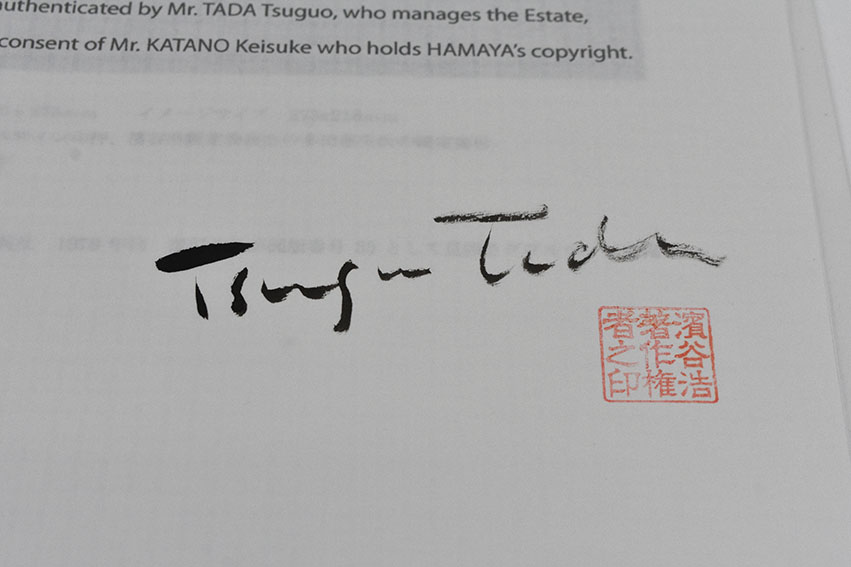 authenticated by Mr. TADA Tsuguo, who manages the Estate,
consent of Mr. KATANO Keisuke who holds HAMAYA's copyright.
Tsuguo Tada
濱谷浩
著作権
者之印